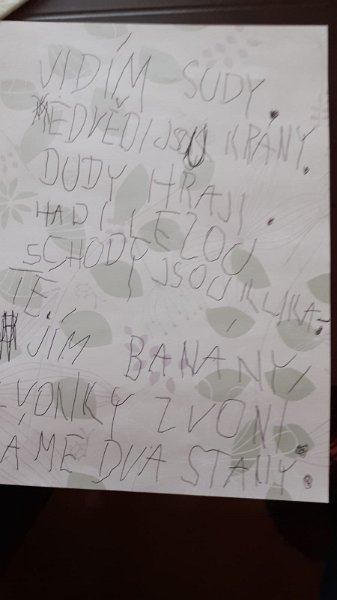 VIDÍM SUDY.
NEDVĚDI JSOU KRÁNY.
DUDY HRAJÍ.
HADI LEZOU
SCHODY JSOU KLIKA-
TÉ.
JÍM BANÁNY,
VONÍKY ZVONÍ
A ME DVA STANY.